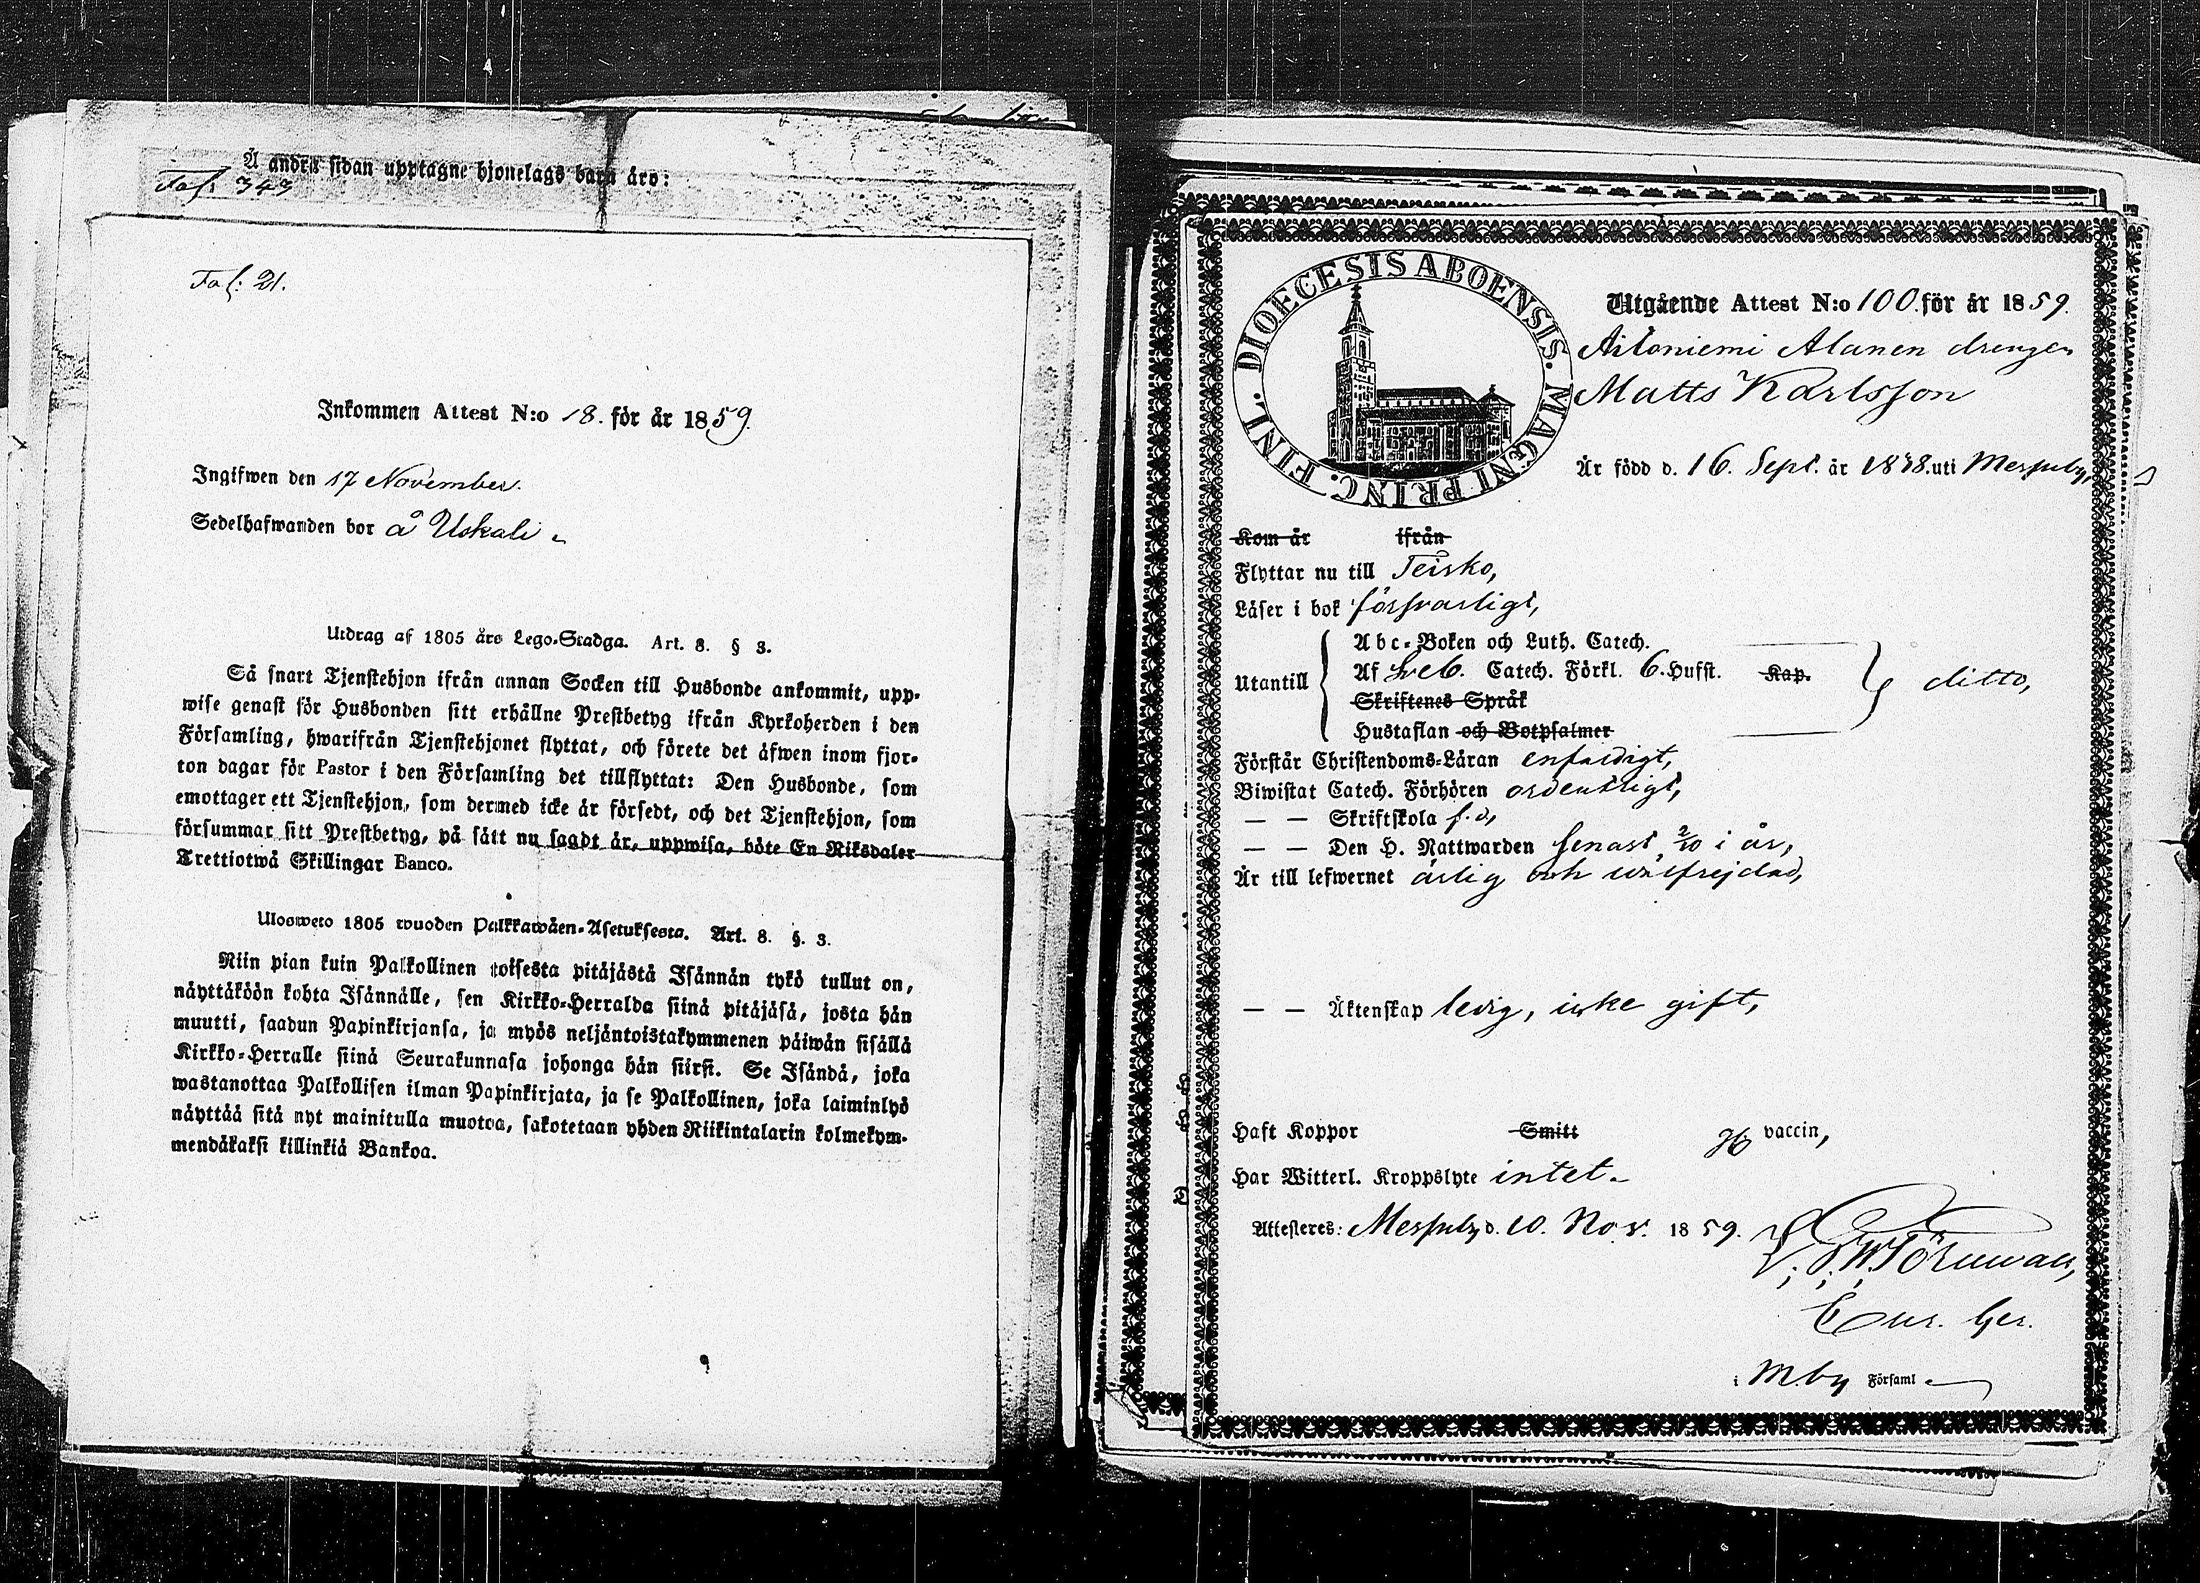 Å andra sidan upptagne hjonelags barn äro:
Fol: 343
Fol: 21.
Inkommen Attest N:o 18. för år 1859.
Ingifwen den 17 November.
Sedelhafwanden bor å Uskali
Utdrag af 1805 års Lego-Stadga. Art. 8. § 3.
Så snart Tjenstehjon ifrån annan Socken till Husbonde ankommit, upp-
wise genast för Husbonden sitt erhållne Prestbetyg ifrån Kyrkoherden i den
Församling, hwarifrån Tjenstehjonet flyttat, och förete det äfwen inom fjor-
ton dagar för Pastor i den Församling det tillflyttat: Den Husbonde, som
emottager ett Tjenstehjon, som dermed icke är försedt, och det Tjenstehjon, som
försummar sitt Prestbetyg, på sätt nu sagdt är, uppwisa, böte En Riksdaler
Trettiotwå Skillingar Banco.
Ulosweto 1805 wuoden Palkkawäen-Asetuksesta. Art. 8. §. 3.
Niin pian kuin Palkollinen toisesta pitäjästä Isännän tykö tullut on,
näyttäköön kohta Isännälle, sen Kirkko-Herralda siinä pitäjäsä, josta hän
muutti, saadun Papinkirjansa, ja myös neljäntoistakymmenen päiwän sisällä
Kirkko-Herralle siinä Seurakunnasa johonga hän siirsi. Se Isändä, joka
wastanottaa Palkollisen ilman Papinkirjata, ja se Palkollinen, joka laiminlyö
näyttää sitä nyt mainitulla muotoa, sakotetaan yhden Riikintalarin kolmekym-
mendäkaksi killinkiä Bankoa.
DIOECESIS ABOENSIS. MAGNI PRINC. FINL.
Utgående Attest N:o 100. för år 1859.
Aitoniemi Alanen drengen
Matts Karlsson
Är född d. 16. Sept. år 1838. uti Messuby,
Kom år ifrån
Flyttar nu till Teisko,
Läser i bok försvarligt,
Abc-Boken och Luth. Catech.
Utantill Af Sveb. Catech. Förkl. 6. Hufst. Kap. ditto,
Skriftenes Språk
Hustaflan och Botpsalmer
Förstår Christendoms-Läran enfaldigt,
Biwistat Catech. Förhören ordentligt,
— — Skriftskola f. d,
— — Den H. Nattwarden senast 2/10 i år,
Är till lefwernet ärlig och wälfrejdad,
— — Äktenskap ledig, icke gift,
Haft Koppor Smitt vaccin,
Har Witterl. Kroppslyte intet.
Attesteres: Messuby d. 10. Nov. 1859.
i Mby Församl